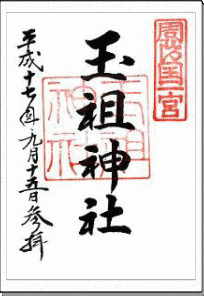 周防国一宮
玉祖神社
平成十七年九月十五日参拝